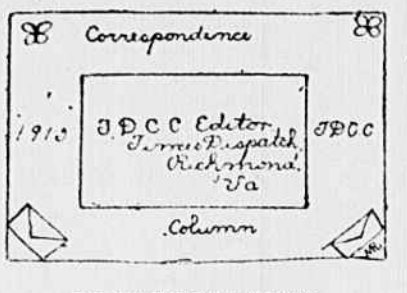 Correspondence
1913 T.D.C.C Editor, TDCC
Times Dispatch,
Richmond,
Va
Column